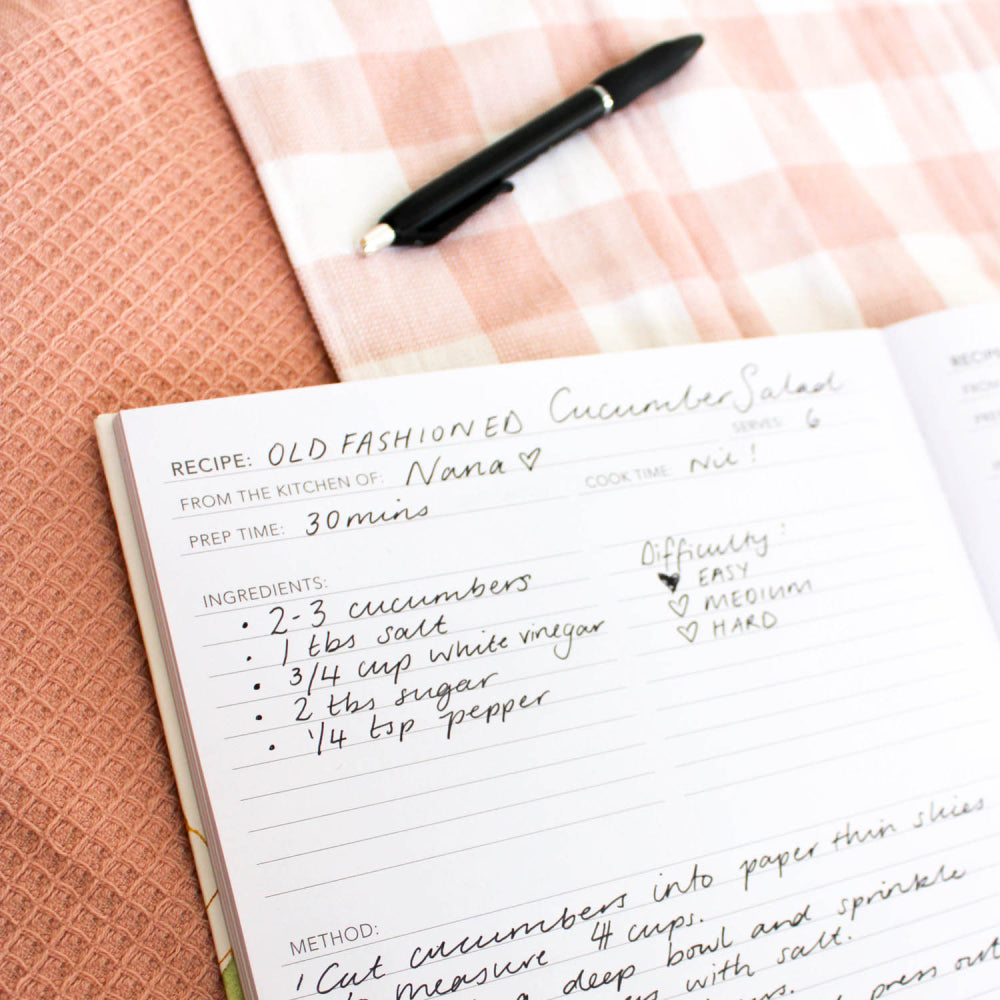 RECIPE: OLD FASHIONED Cucumber Salad
FROM THE KITCHEN OF: Nana ♡ SERVES: 6
PREP TIME: 30mins COOK TIME: Nil!
INGREDIENTS:
• 2-3 cucumbers
• 1 tbs salt
• 3/4 cup white vinegar
• 2 tbs sugar
• 1/4 tsp pepper
Difficulty:
♥ EASY
♡ MEDIUM
♡ HARD
METHOD:
1 Cut cucumbers into paper thin
measure 4 cups.
a deep bowl and sprinkle
with salt.
press out
RECIP
FROM
PREP